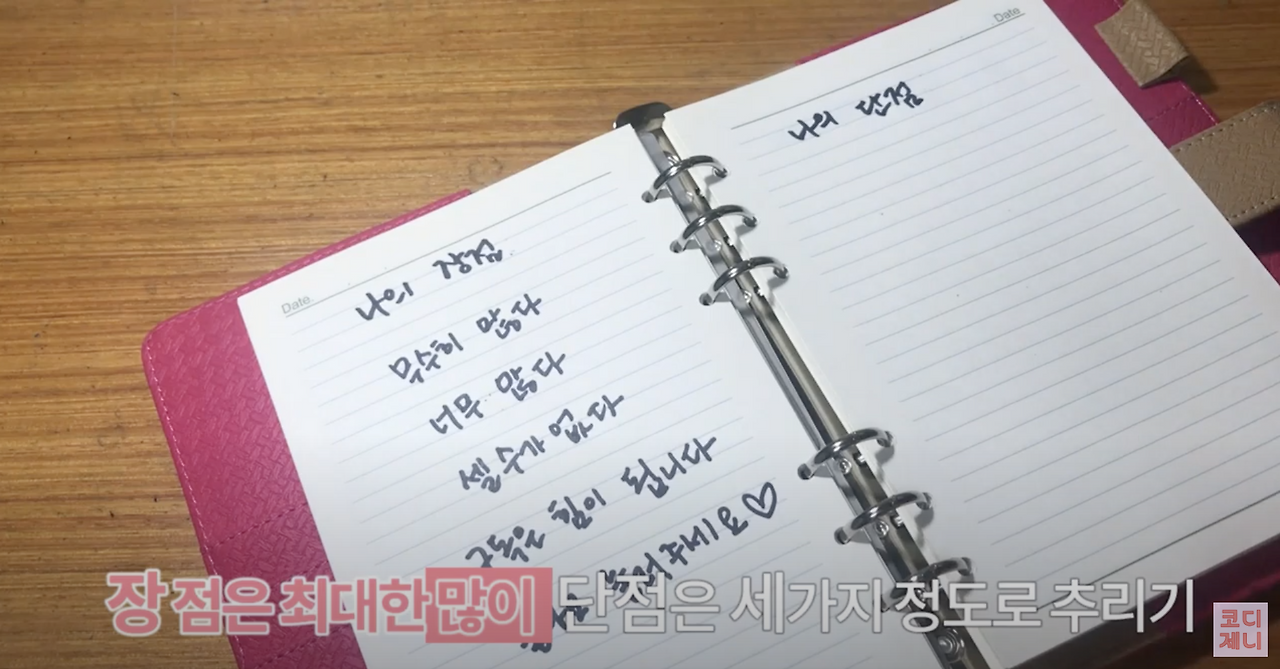 Date.
나의 장점
무수히 많다
너무 많다
셀수가 없다
구독은 힘이 됩니다
눌러주세요♡
Date
나의 단점
장점은 최대한 많이 단점은 세가지 정도로 추리기
코디
제니